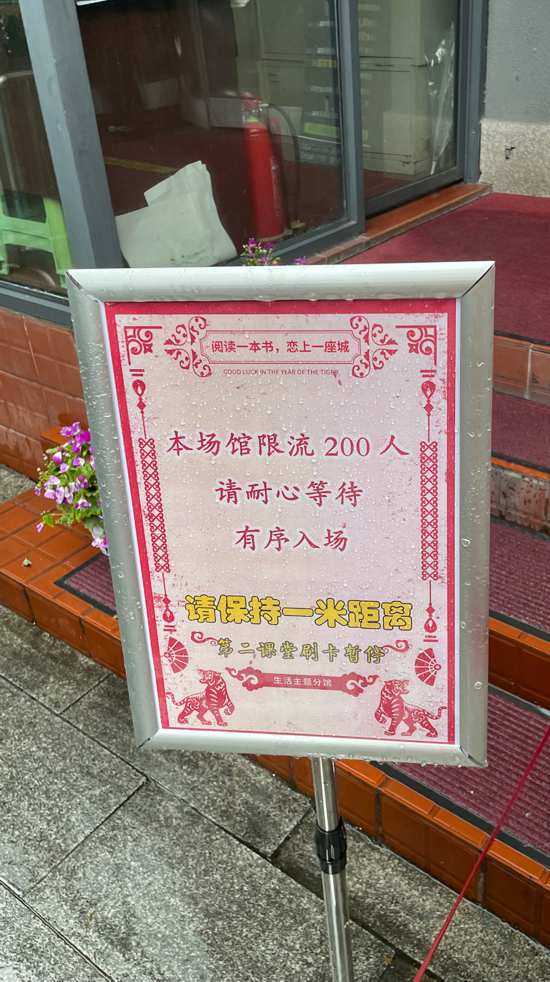 阅读一本书，恋上一座城
GOOD LUCK IN THE YEAR OF THE TIGER
本场馆限流 200 人
请耐心等待
有序入场
请保持一米距离
第二课堂刷卡暂停
生活主题分馆